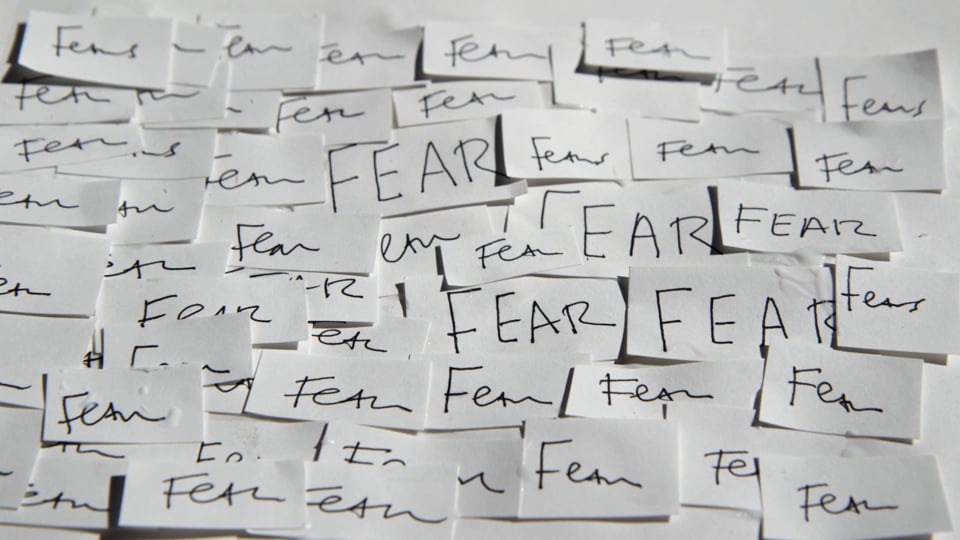 Fears
Fear
Fear
Fear
Fear
Fear
Fear
Fear
Fear
Fears
Fear
FEAR
Fears
Fear
Fear
Fear
FEAR
FEAR
Fear
Fear
Fear
FEAR
FEAR
Fears
Fear
Fear
Fear
Fear
Fear
Fear
Fear
Fear